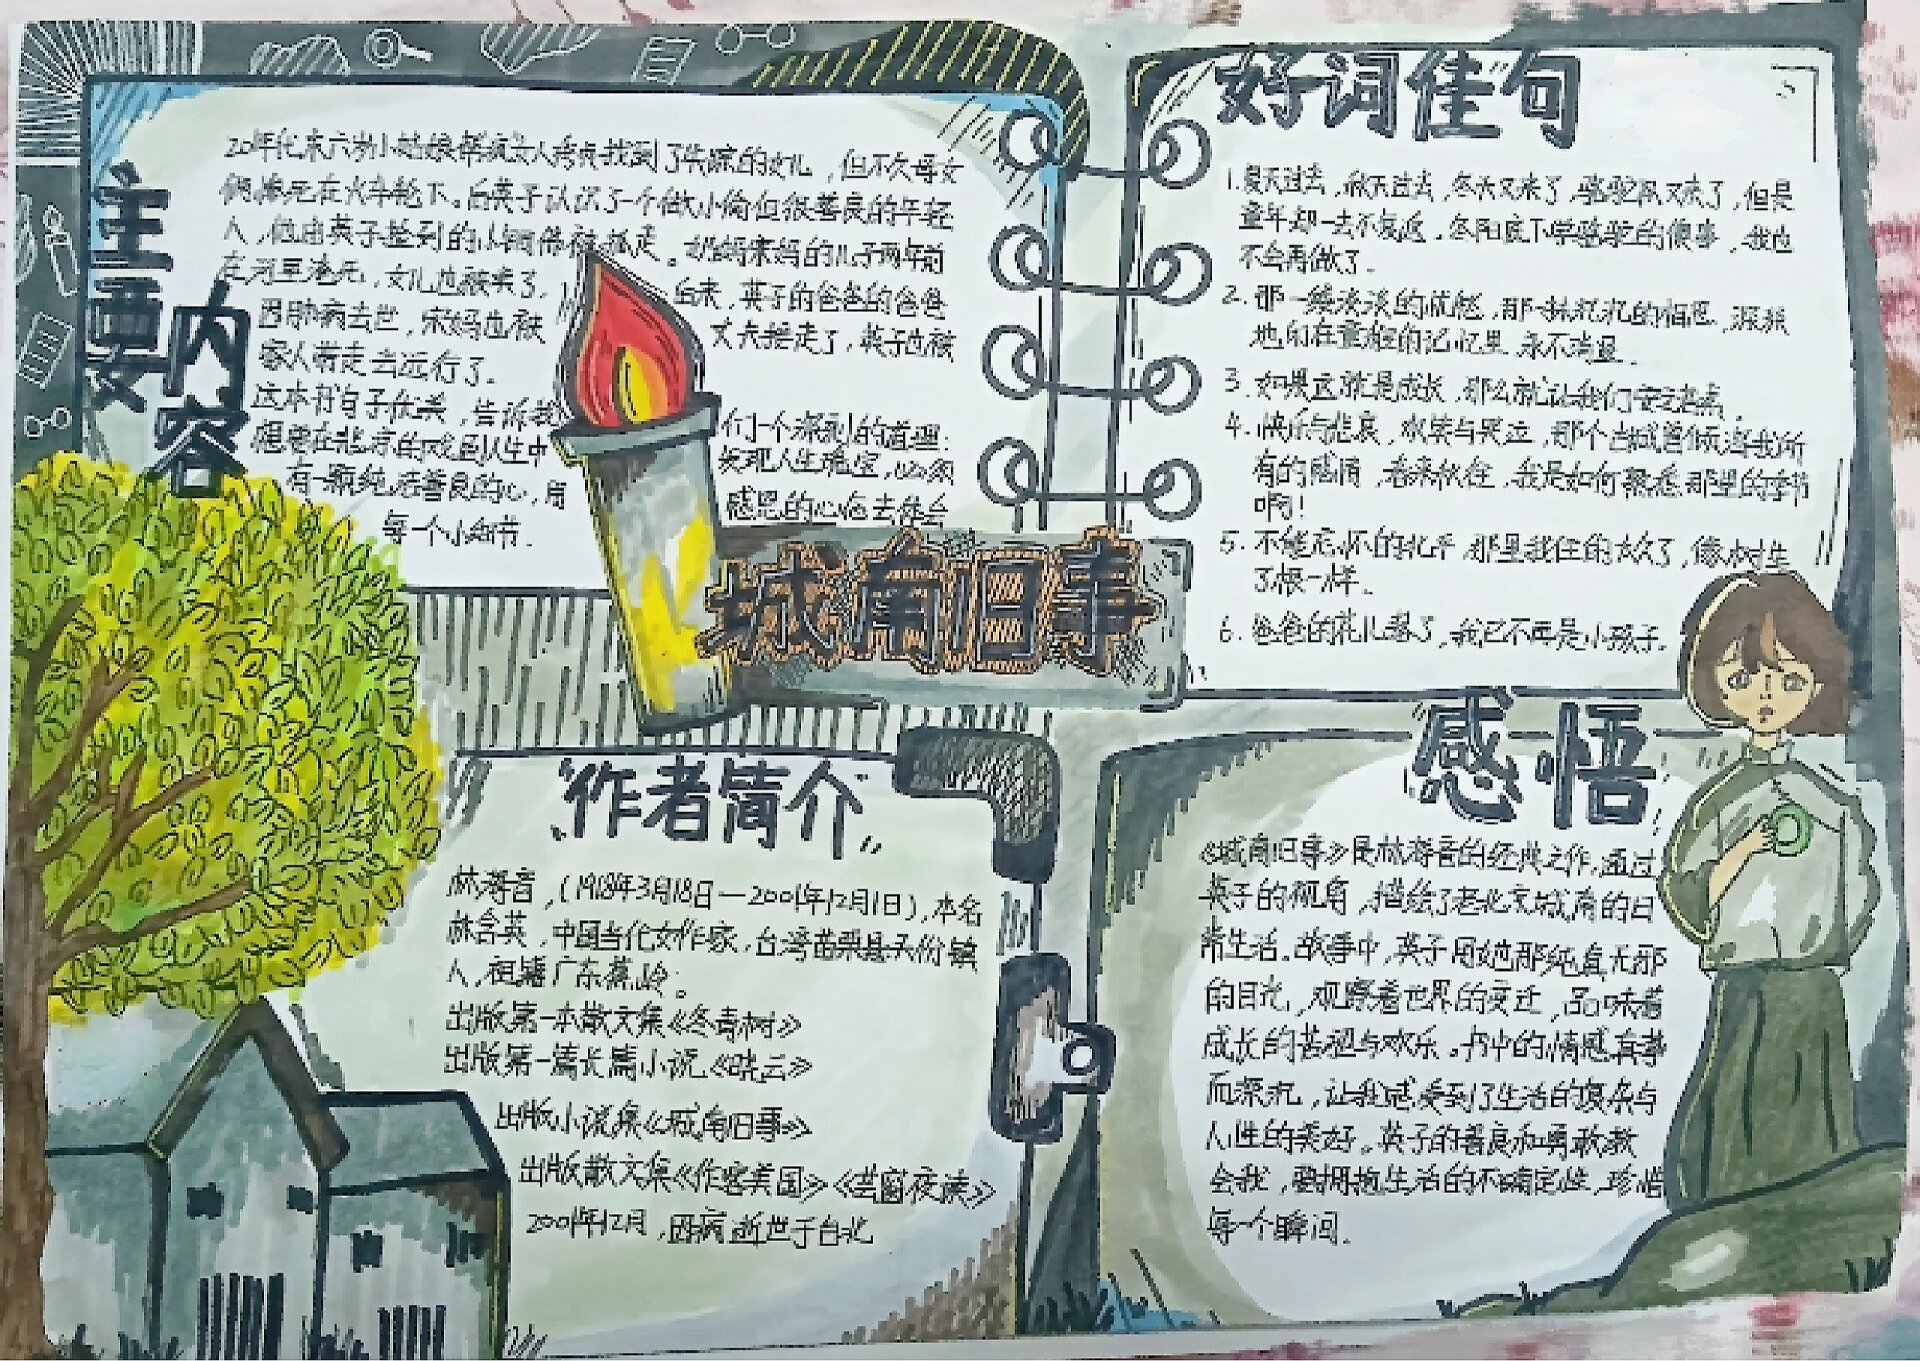 城南旧事
主要内容
20年代末六岁小姑娘帮疯女人秀贞找到了失踪的女儿，但不久母女
俩惨死在火车轮下。后英子认识了一个做小偷但很善良的年轻
人，他由英子捡到的小铜佛被抓走。奶妈宋妈的儿子两年前
在河里淹死，女儿也被卖了，后来，英子的爸爸的爸爸
因肺病去世，宋妈也被丈夫接走了，英子也被
家人带走去远行了。
这本书自子优美，告诉我们一个深刻的道理：
想要在悲凉的戏剧人生中发现人生瑰宝，必须
有一颗纯洁善良的心，用感恩的心态去体会
每一个小细节．
好词佳句
1.夏天过去，秋天过去，冬天又来了，骆驼队又来了，但是
童年却一去不复返。冬阳底下学骆驼的傻事，我也
不会再做了．
2．那一缕淡淡的忧愁，那一抹沉沉的相思，深深
地印在童年的记忆里，永不消退．
3．如果这就是成长，那么就让我们安之若点．
4．快乐与悲哀，欢笑与哭泣，那个古城曾倾注我所
有的感情，春来秋往，我是如何熟悉那里的季节
啊！
5．不能忘怀的北平，那里我住的太久了，像树生
了根一样．
6．爸爸的花儿落了，我已不再是小孩子．
作者简介
林海音，（1918年3月18日—2001年12月1日），本名
林含英，中国当代女作家，台湾苗栗县头份镇
人，祖籍广东蕉岭。
出版第一本散文集《冬青树》
出版第一篇长篇小说《晓云》
出版小说集《城南旧事》
出版散文集《作客美国》《芸窗夜读》
2001年12月，因病逝世于台北
感悟
《城南旧事》是林海音的经典之作，通过
英子的视角，描绘了老北京城南的日
常生活。故事中，英子用她那纯真无邪
的目光，观察着世界的变迁，品味着
成长的苦涩与欢乐。书中的情感真挚
而深沉，让我感受到了生活的复杂与
人性的美好。英子的善良和勇敢教
会我，要拥抱生活的不确定性，珍惜
每一个瞬间．